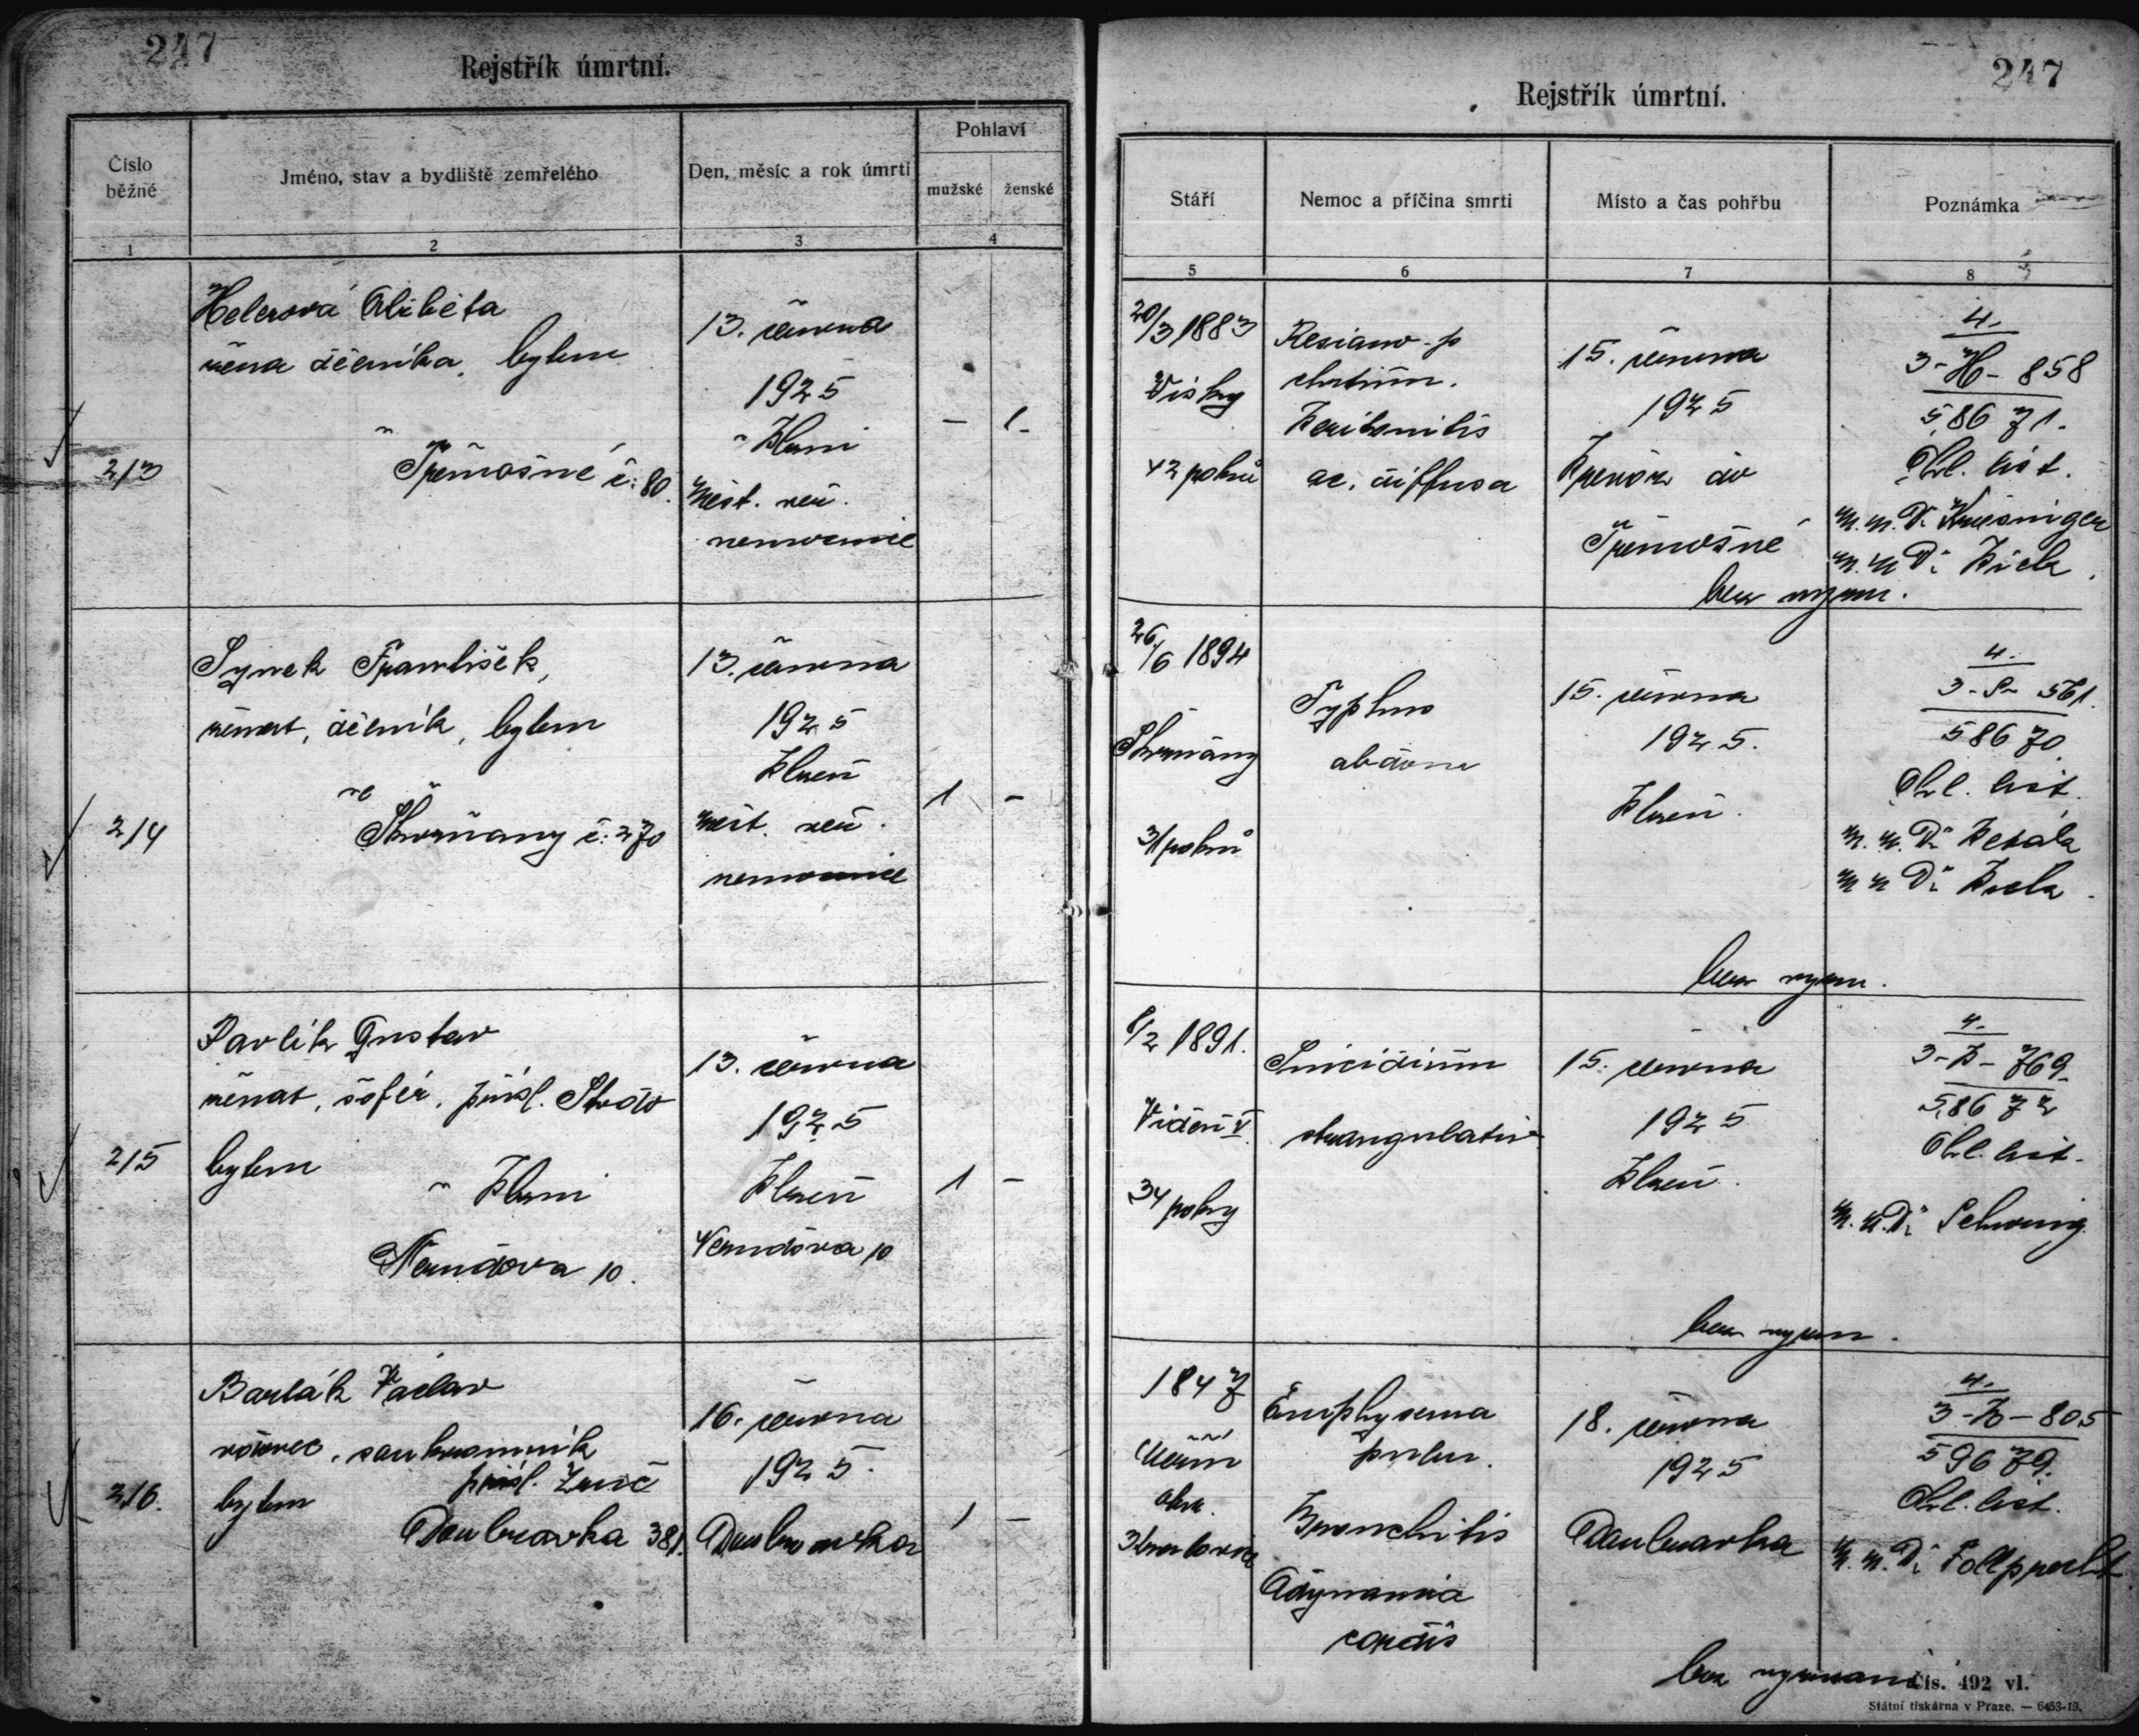 247
Rejstřík úmrtní.
Číslo běžné
Jméno, stav a bydliště zemřelého
Den, měsíc a rok úmrtí
Pohlaví
mužské
ženské
1
2
3
4
213
Helerová Alžběta
žena dělníka, bytem
v Třemošné č. 80.
13. června
1925
v Plzni
měst. veř.
nemocnice
-
1
214
Synek František,
ženat, dělník, bytem
ve Skvrňany č. 270
13. června
1925
Plzeň
měst. veř.
nemocnice
1
-
215
Pavlík Gustav
ženat, šofér, přísl.
bytem
v Plzni
Nerudova 10.
13. června
1925
Plzeň
Nerudova 10
1
-
216.
Barták Václav
vdovec, soukromník
přísl.
bytem
Doubravka 381.
16. června
1925.
Doubravka
1
-
247
Rejstřík úmrtní.
Stáří
Nemoc a příčina smrti
Místo a čas pohřbu
Poznámka
5
6
7
8
20/3 1883
42 roků
Peritonitis
ac. diffusa
15. června
1925
Převoz do
Třemošné
4.
3-H-858
58671.
Ohl. list.
bez vyzn.
26/6 1894
Skvrňany
31 roků
Typhus
abdom
15. června
1925.
Plzeň.
4.
3-S-561.
58670
Ohl. list.
bez vyzn.
8/2 1891.
Vídeň V
34 roky
Suicidium
strangulatio
15. června
1925
Plzeň.
4.
3-P-769.
58672
Ohl. list.
bez vyzn.
1847
Emphysema
pulm.
Bronchitis
Adynamia
cordis
18. června
1925
Doubravka
4.
3-B-805
59679.
Ohl. list.
bez vyznání
Čís. 492 vl.
Státní tiskárna v Praze. — 6453-19.